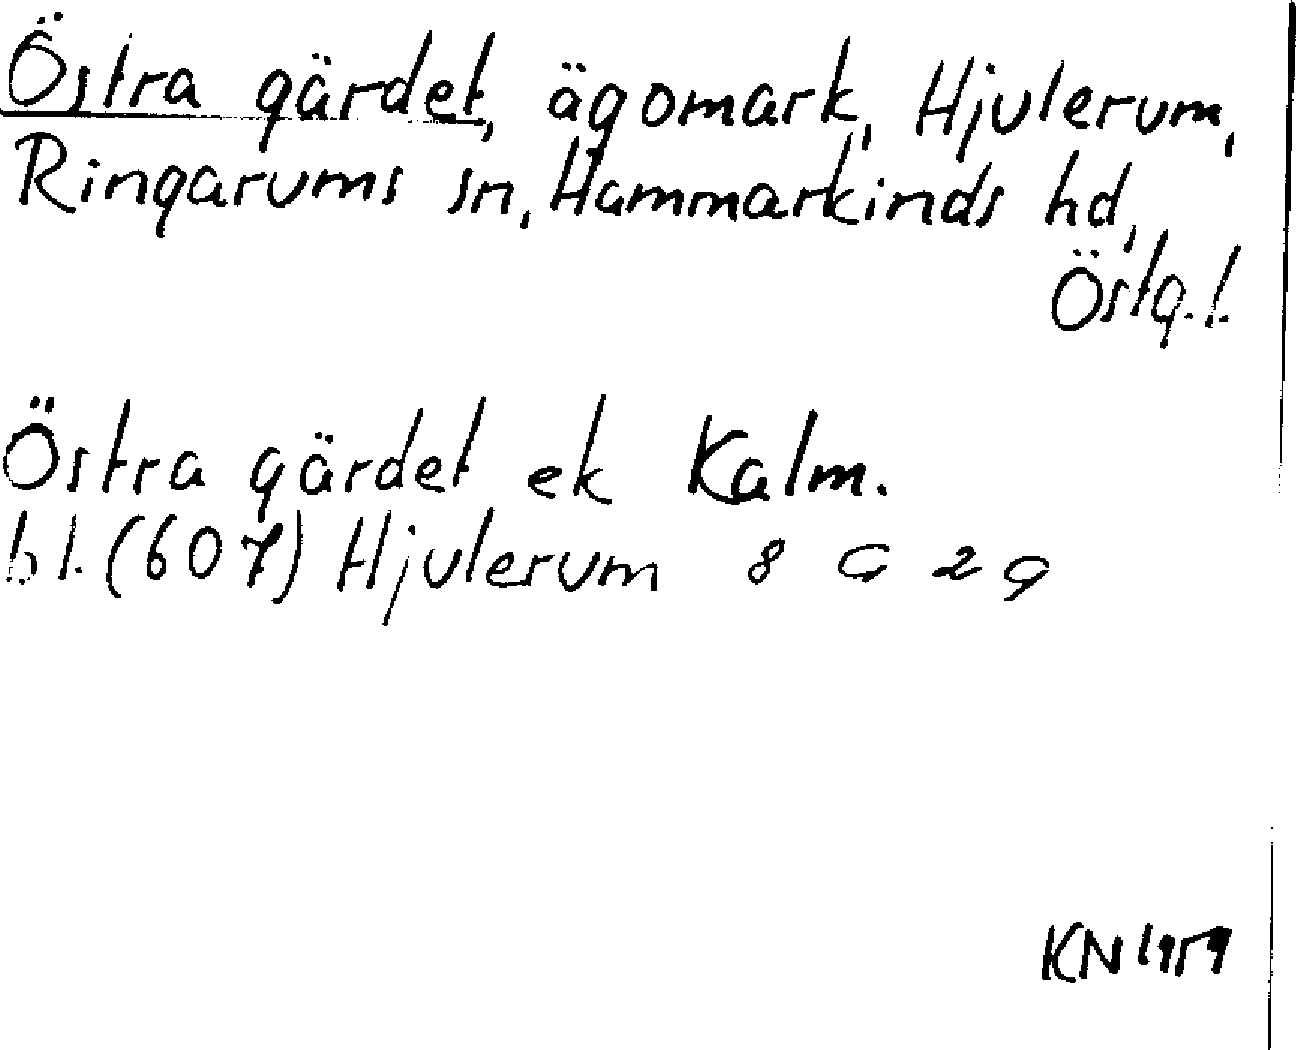 Östra gärdet, ägomark, Hjulerum,
Ringarums sn, Hammarkinds hd,
Östg.l.
Östra gärdet ek Kalm.
bl. (607) Hjulerum 8 G 2g
KN 1959